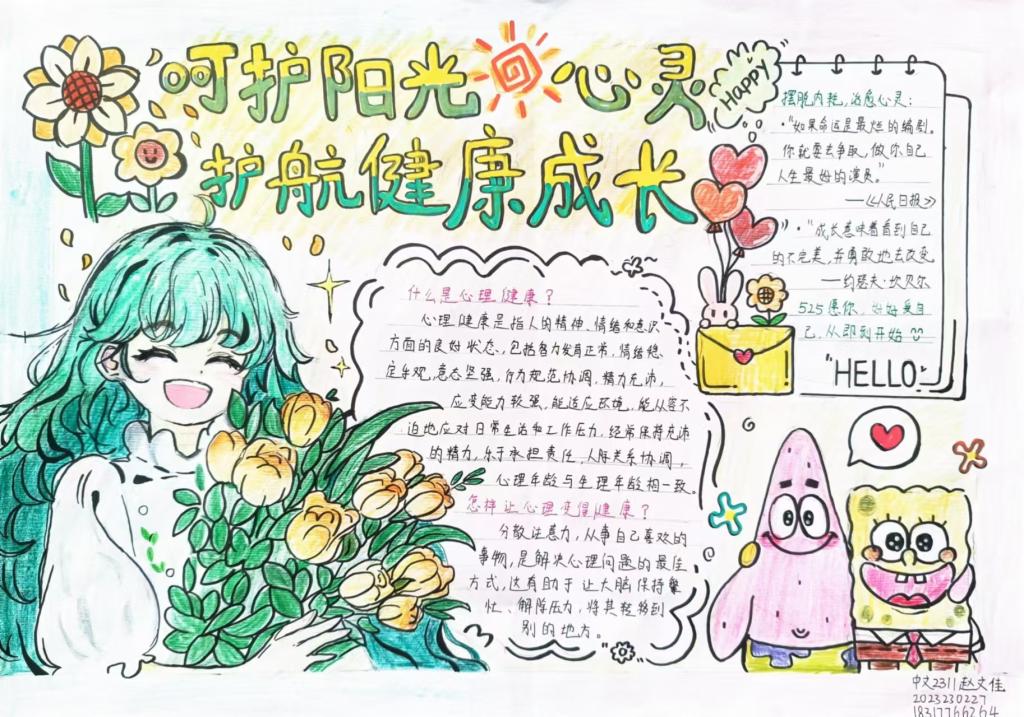 呵护阳光心灵
护航健康成长
Happy
摆脱内耗,治愈心灵:
·"如果命运是最烂的编剧。
你就要去争取,做你自己
人生最好的演员。"
——《人民日报》
·"成长意味着看到自己
的不完美,并勇敢地去改变
——约瑟夫·坎贝尔
525愿你,好好爱自
己,从即刻开始
"HELLO"
什么是心理健康?
心理健康是指人的精神、情绪和意识
方面的良好状态,包括智力发育正常,情绪稳
定乐观,意志坚强,行为规范协调,精力充沛,
应变能力较强,能适应环境,能从容不
迫地应对日常生活和工作压力,经常保持充沛
的精力,乐于承担责任,人际关系协调,
心理年龄与生理年龄相一致。
怎样让心理变得健康?
分散注意力,从事自己喜欢的
事物,是解决心理问题的最佳
方式,这有助于让大脑保持繁
忙、解除压力,将其转移到
别的地方。
中文2311赵文佳
2023230227
18317766264